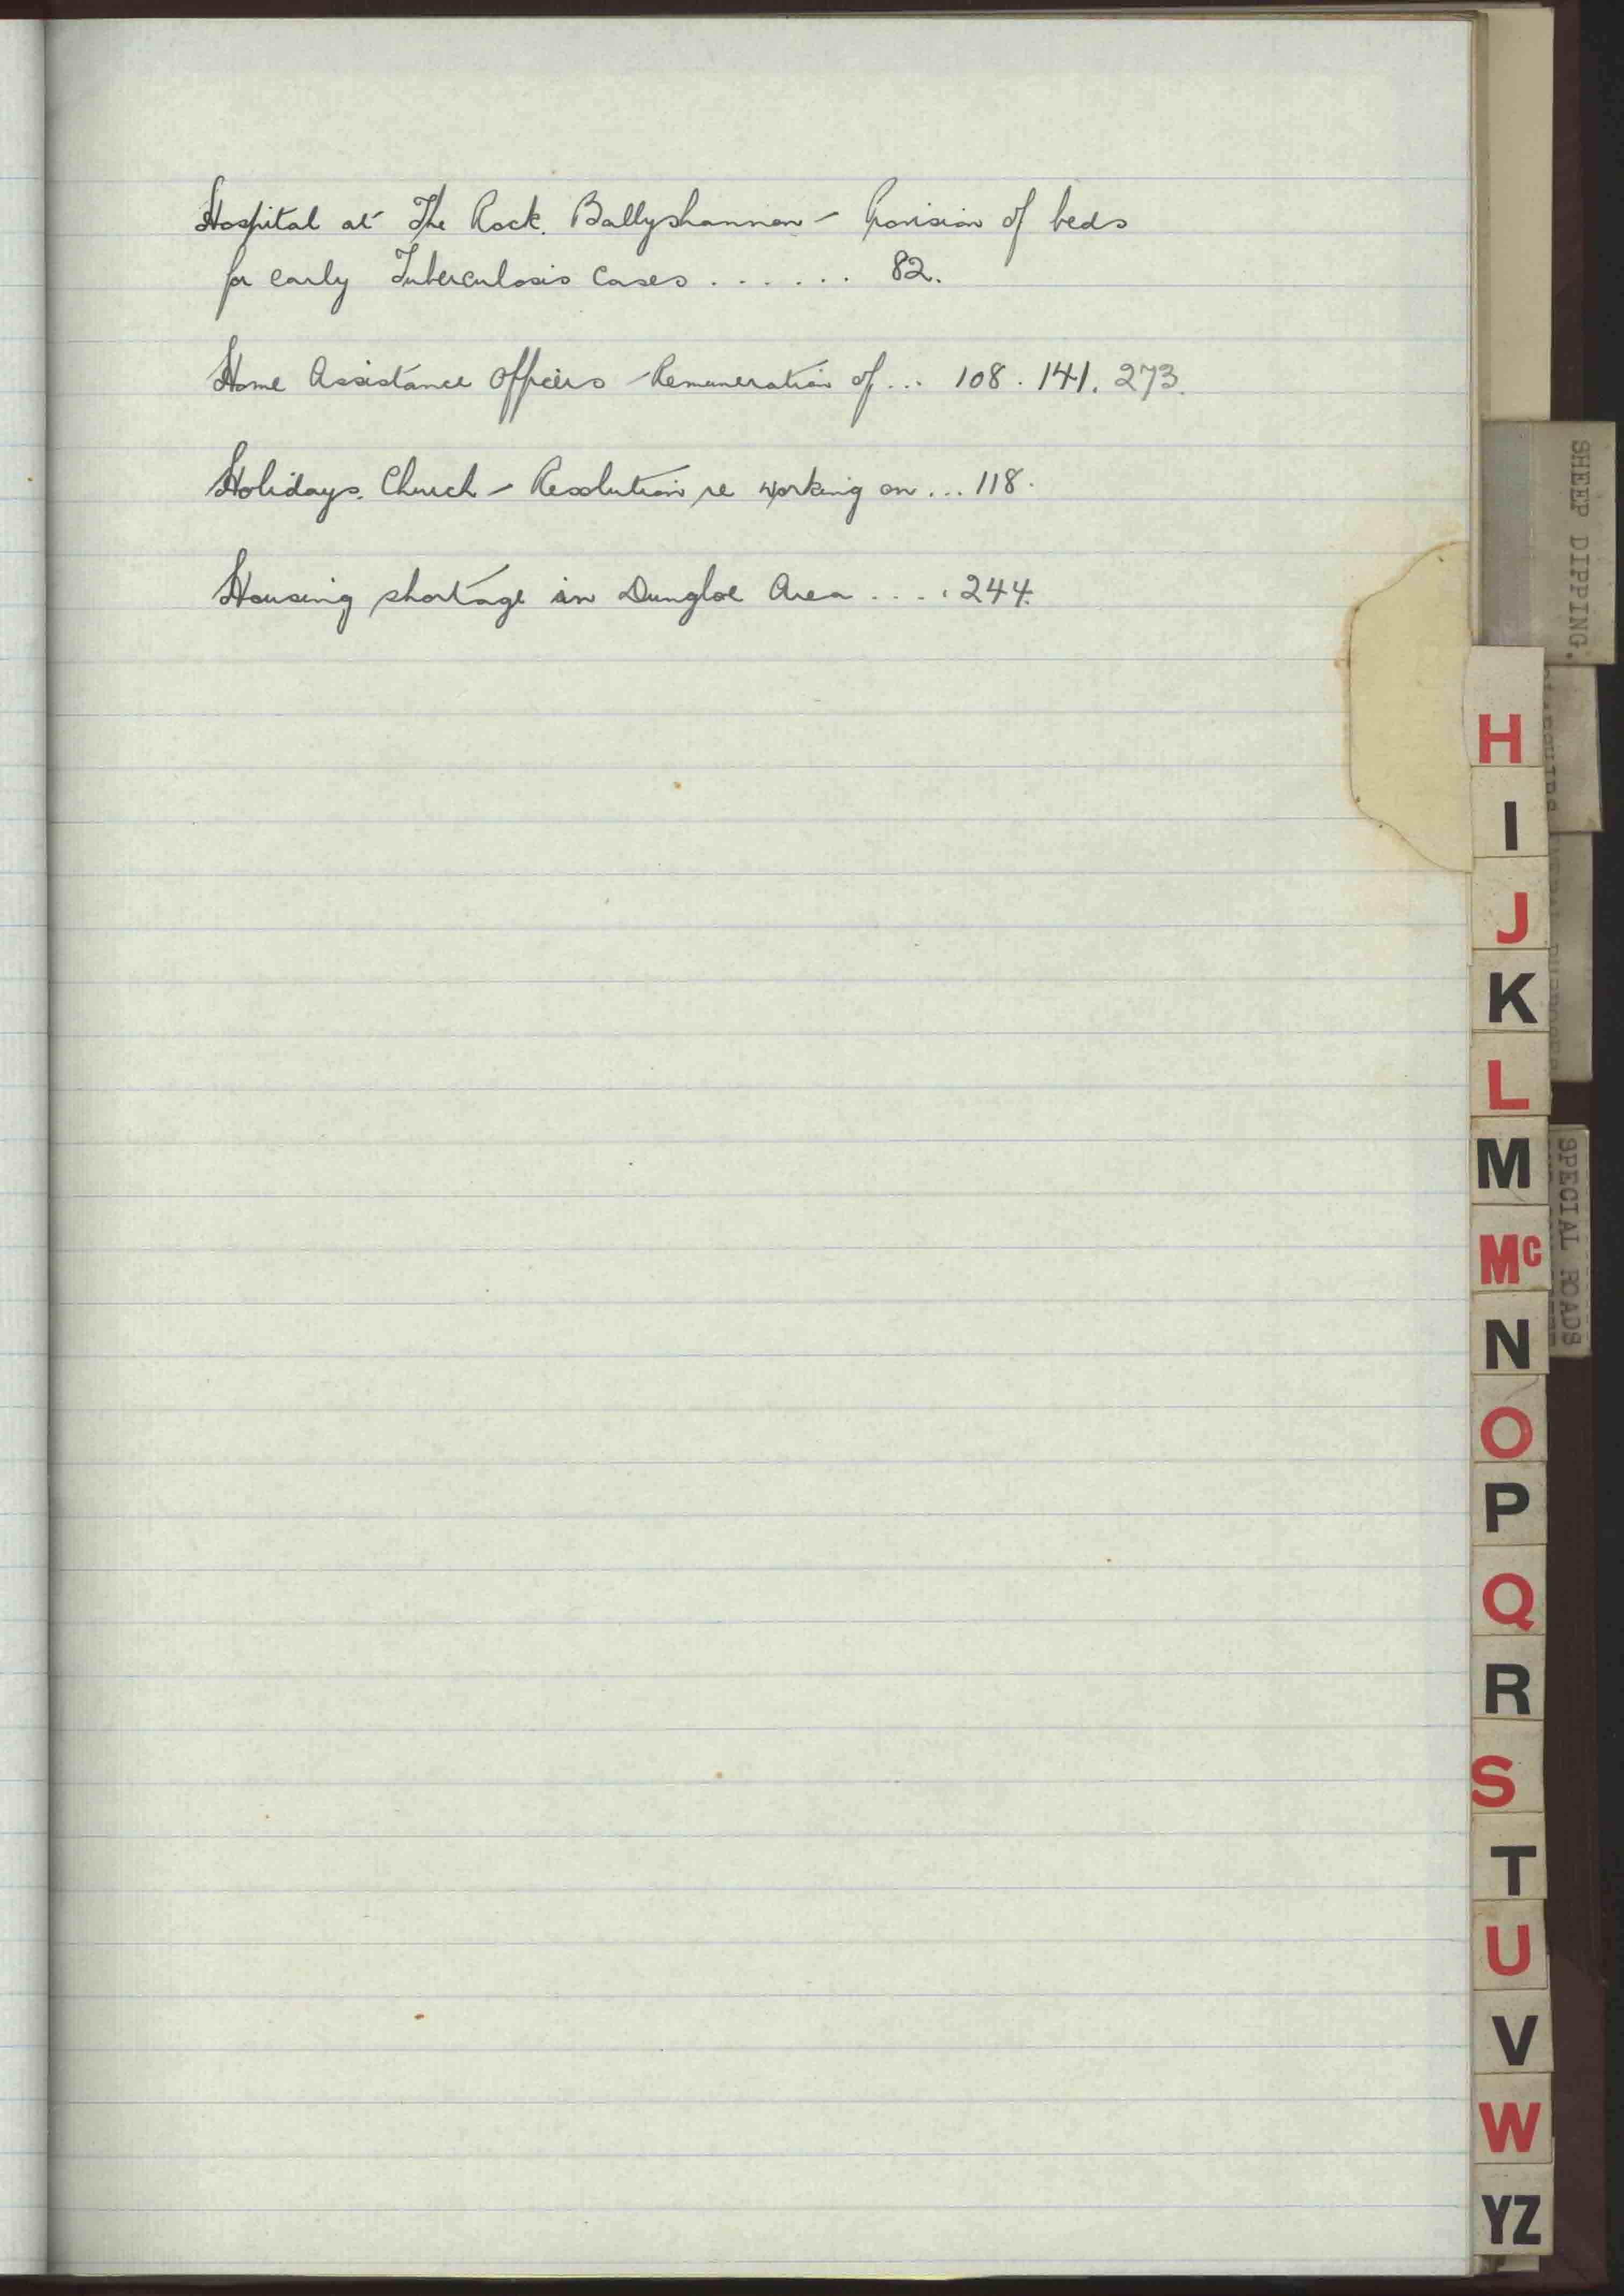 Hospital at The Rock. Ballyshannon - Provision of beds
for early Tuberculosis Cases ...... 82.
Home Assistance Officers - Remuneration of ... 108. 141. 273.
Holidays. Church - Resolution re working on ... 118.
Housing shortage in Dungloe Area .... 244.
SHEEP DIPPING.
H
I
J
K
L
M
SPECIAL ROADS
Mc
N
O
P
Q
R
S
T
U
V
W
YZ